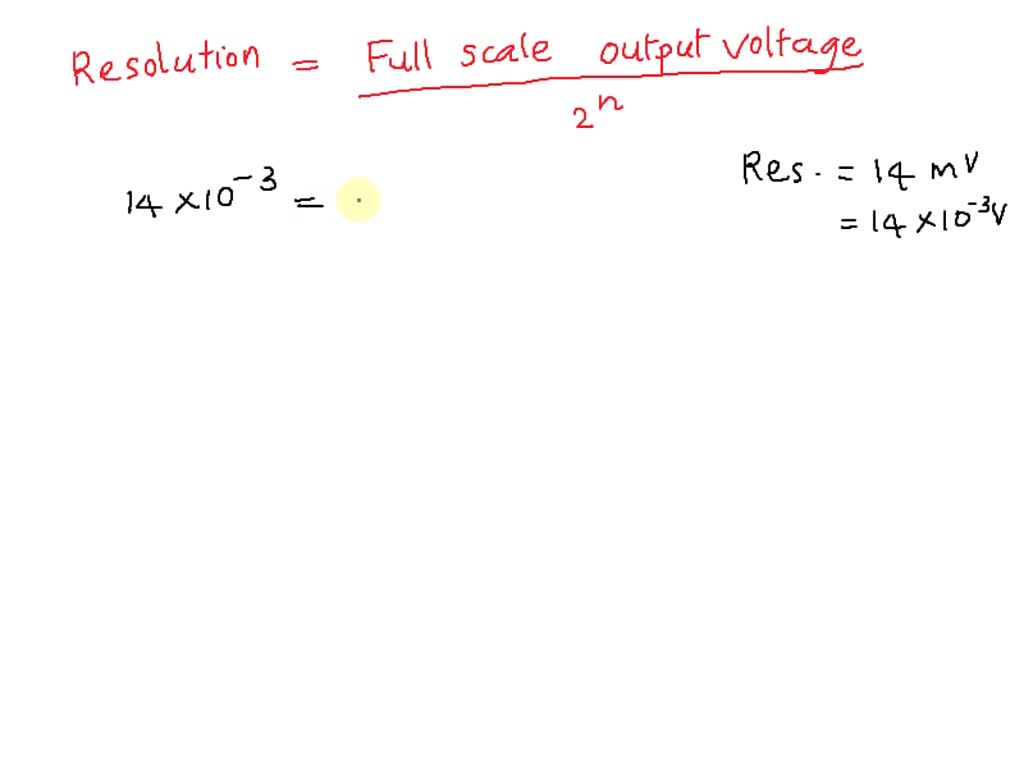 Resolution = Full scale output voltage
2ⁿ
Res. = 14 mV
14 × 10⁻³ =
= 14 × 10⁻³V